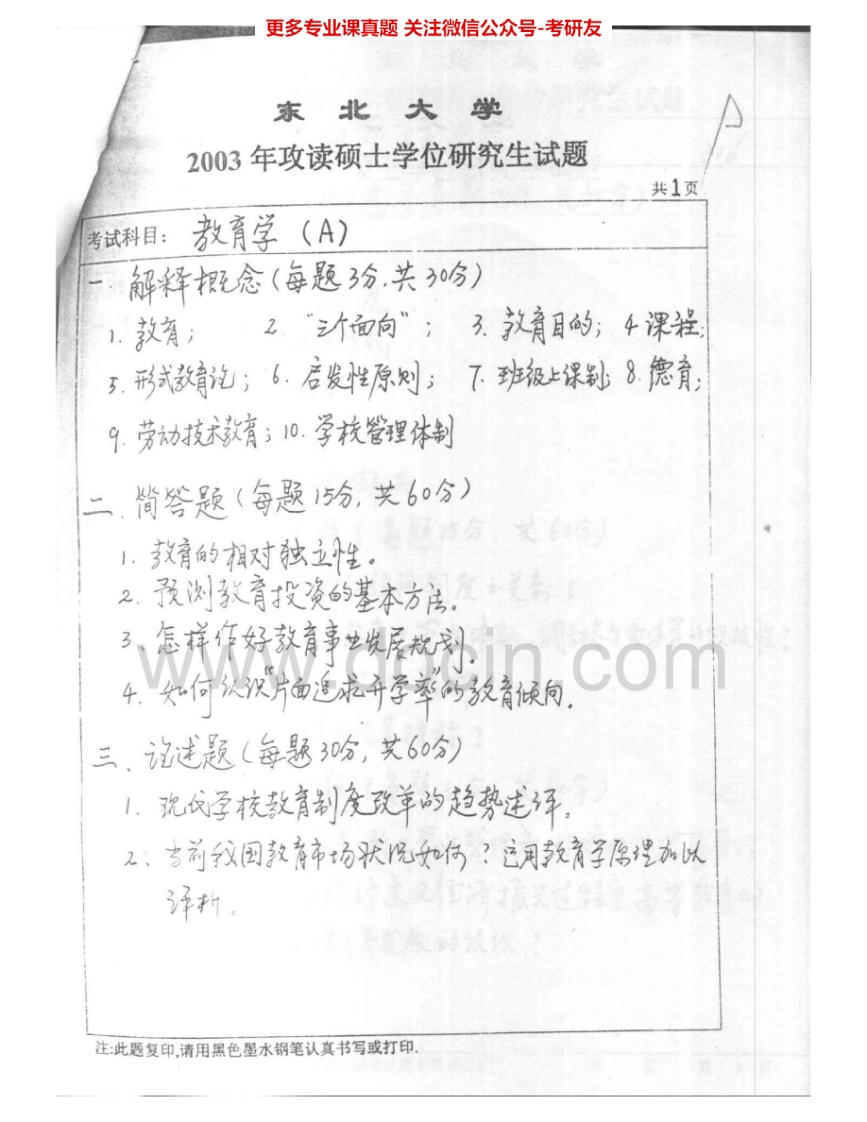 更多专业课真题 关注微信公众号-考研友
东北大学
2003年攻读硕士学位研究生试题
共1页
考试科目: 教育学（A）
一、解释概念（每题3分，共30分）
1. 教育； 2. “三个面向”； 3. 教育目的； 4. 课程；
5. 形式教育论； 6. 启发性原则； 7. 班级上课制； 8. 德育；
9. 劳动技术教育； 10. 学校管理体制
二、简答题（每题15分，共60分）
1. 教育的相对独立性。
2. 预测教育投资的基本方法。
3. 怎样作好教育事业发展规划。
www.docin.com
4. 如何认识“片面追求升学率”的教育倾向。
三、论述题（每题30分，共60分）
1. 现代学校教育制度改革的趋势述评。
2. 当前我国教育市场状况如何？运用教育学原理加以
评析。
注:此题复印,请用黑色墨水钢笔认真书写或打印.